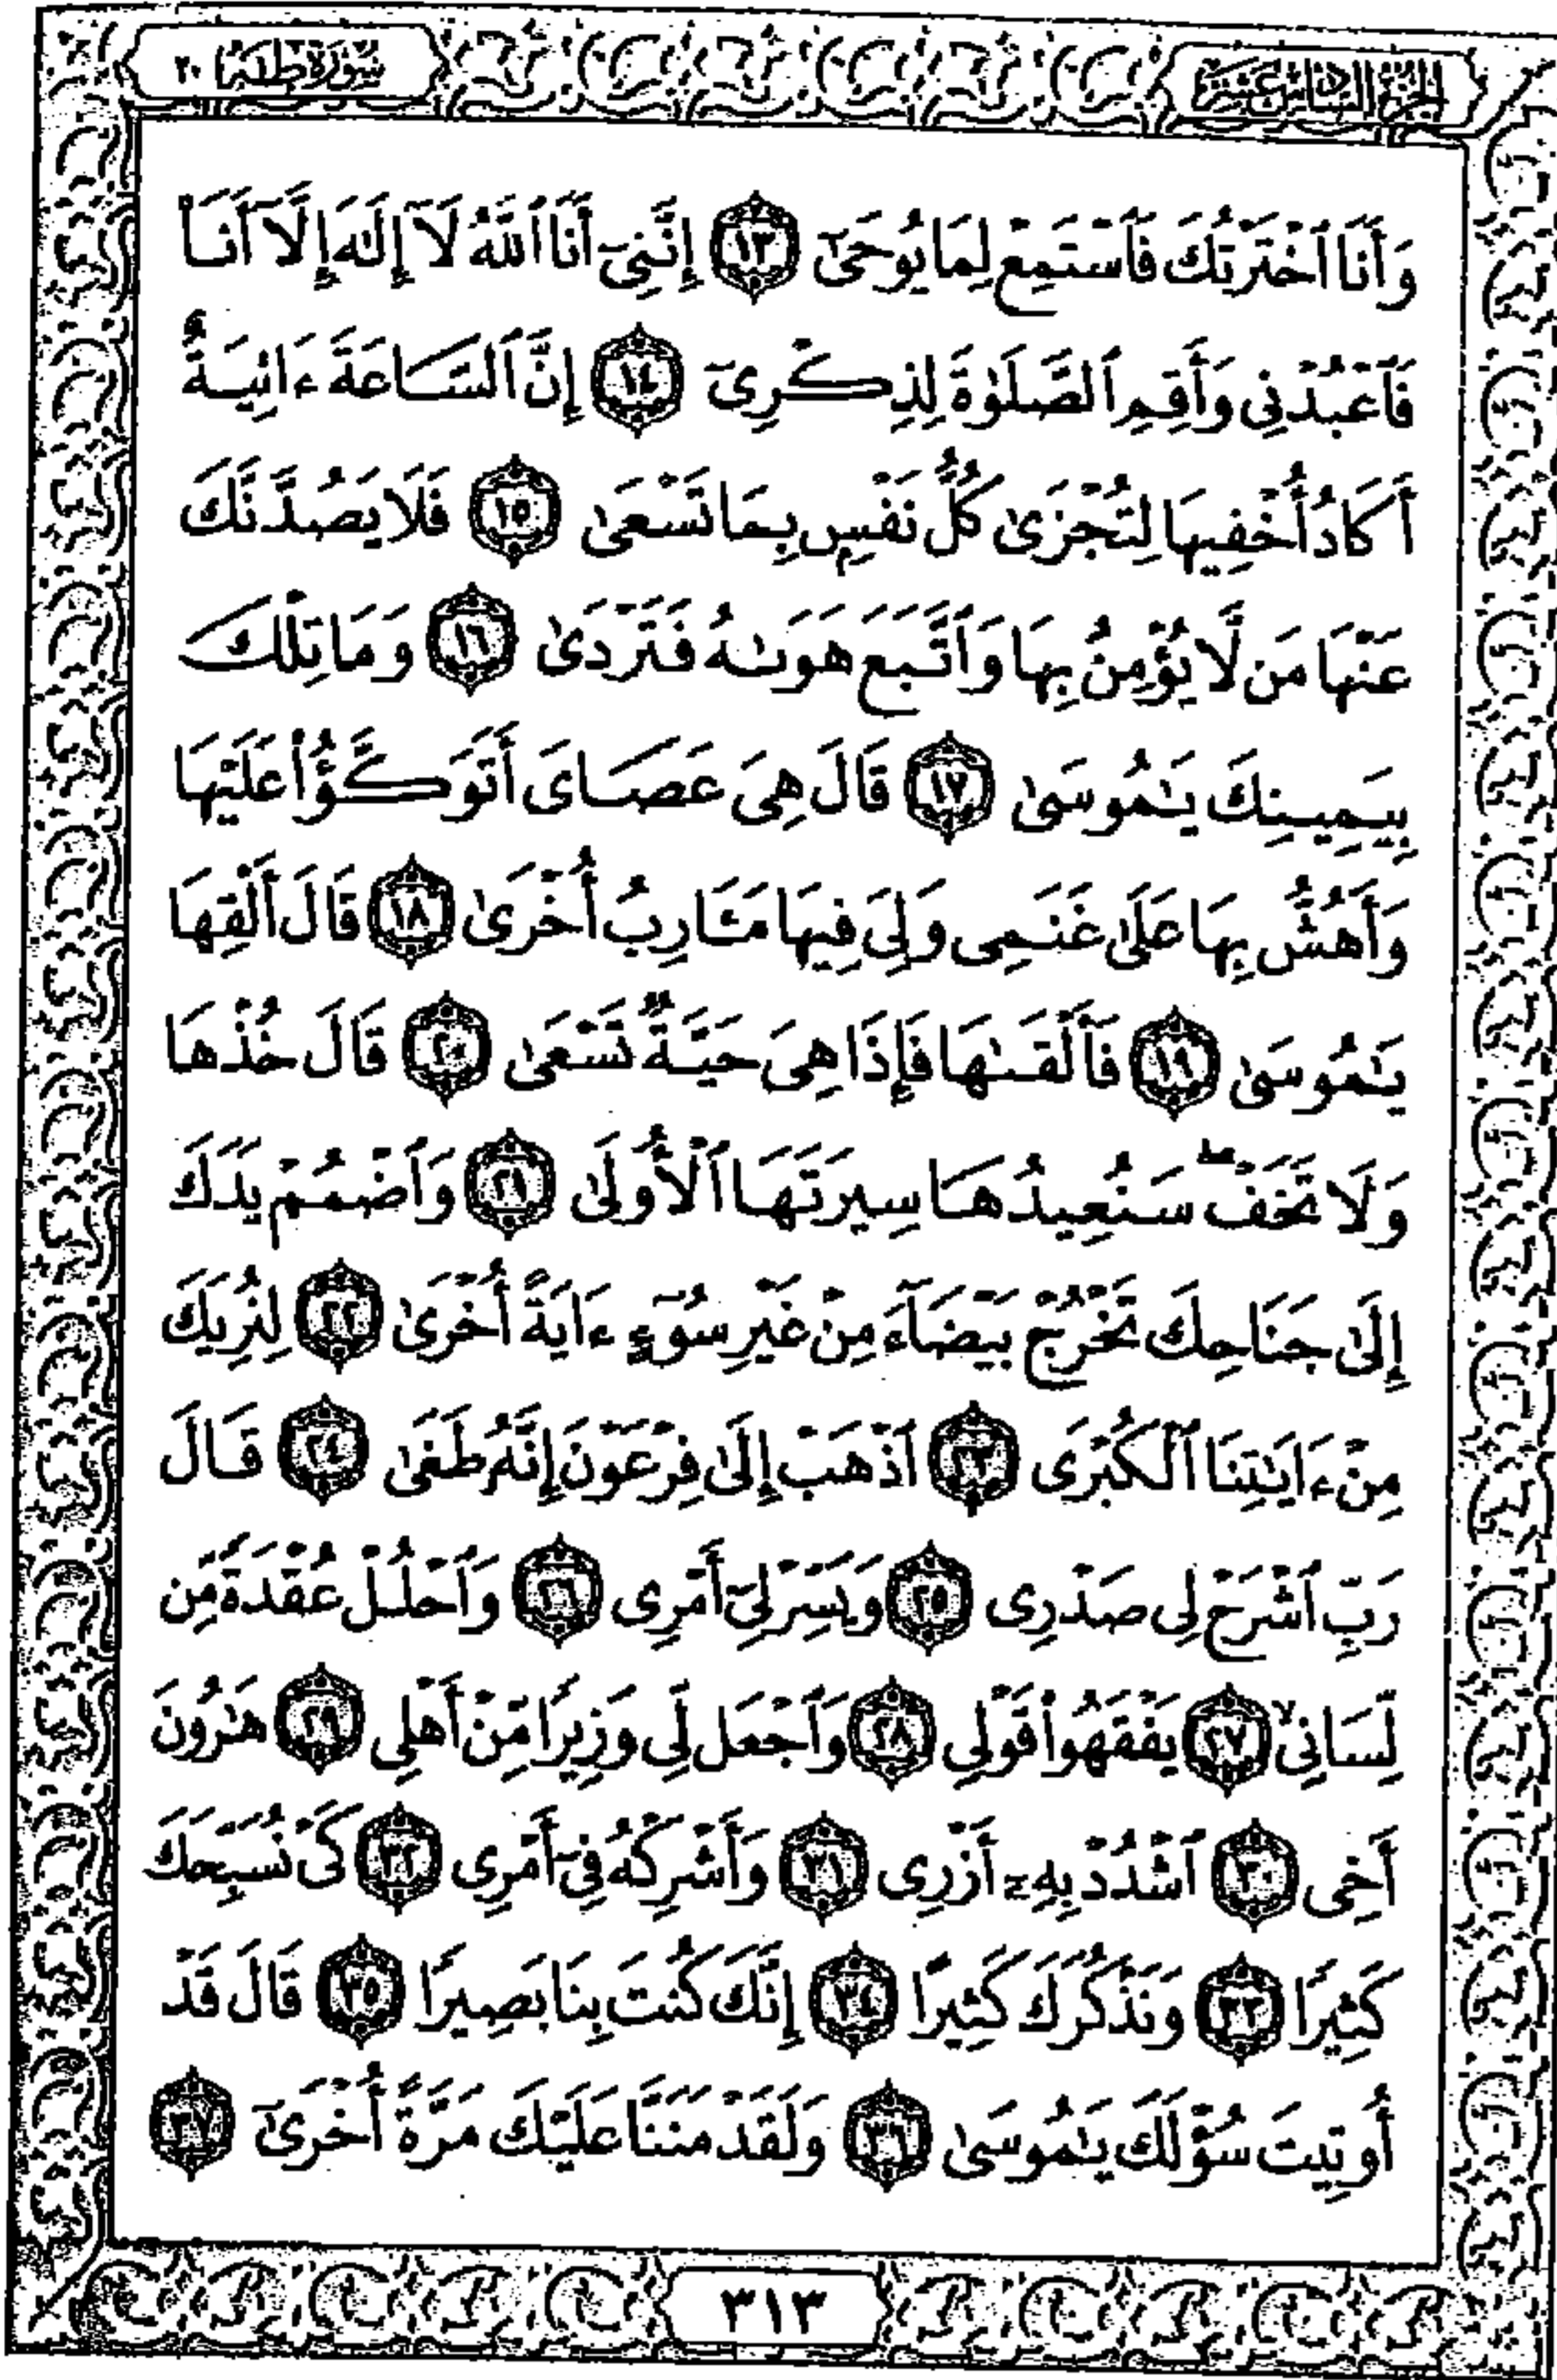 الجزء السادس عشر
سورة طه ٢٠
وَأَنَا ٱخْتَرْتُكَ فَٱسْتَمِعْ لِمَا يُوحَىٰٓ ١٣ إِنَّنِىٓ أَنَا ٱللَّهُ لَآ إِلَٰهَ إِلَّآ أَنَا۠
فَٱعْبُدْنِى وَأَقِمِ ٱلصَّلَوٰةَ لِذِكْرِىٓ ١٤ إِنَّ ٱلسَّاعَةَ ءَاتِيَةٌ
أَكَادُ أُخْفِيهَا لِتُجْزَىٰ كُلُّ نَفْسٍۭ بِمَا تَسْعَىٰ ١٥ فَلَا يَصُدَّنَّكَ
عَنْهَا مَن لَّا يُؤْمِنُ بِهَا وَٱتَّبَعَ هَوَىٰهُ فَتَرْدَىٰ ١٦ وَمَا تِلْكَ
بِيَمِينِكَ يَٰمُوسَىٰ ١٧ قَالَ هِىَ عَصَاىَ أَتَوَكَّؤُا۟ عَلَيْهَا
وَأَهُشُّ بِهَا عَلَىٰ غَنَمِى وَلِىَ فِيهَا مَـَٔارِبُ أُخْرَىٰ ١٨ قَالَ أَلْقِهَا
يَٰمُوسَىٰ ١٩ فَأَلْقَىٰهَا فَإِذَا هِىَ حَيَّةٌ تَسْعَىٰ ٢٠ قَالَ خُذْهَا
وَلَا تَخَفْ ۖ سَنُعِيدُهَا سِيرَتَهَا ٱلْأُولَىٰ ٢١ وَٱضْمُمْ يَدَكَ
إِلَىٰ جَنَاحِكَ تَخْرُجْ بَيْضَآءَ مِنْ غَيْرِ سُوٓءٍ ءَايَةً أُخْرَىٰ ٢٢ لِنُرِيَكَ
مِنْ ءَايَٰتِنَا ٱلْكُبْرَى ٢٣ ٱذْهَبْ إِلَىٰ فِرْعَوْنَ إِنَّهُۥ طَغَىٰ ٢٤ قَالَ
رَبِّ ٱشْرَحْ لِى صَدْرِى ٢٥ وَيَسِّرْ لِىٓ أَمْرِى ٢٦ وَٱحْلُلْ عُقْدَةً مِّن
لِّسَانِى ۙ ٢٧ يَفْقَهُوا۟ قَوْلِى ٢٨ وَٱجْعَل لِّى وَزِيرًا مِّنْ أَهْلِى ٢٩ هَٰرُونَ
أَخِى ٣٠ ٱشْدُدْ بِهِۦٓ أَزْرِى ٣١ وَأَشْرِكْهُ فِىٓ أَمْرِى ٣٢ كَىْ نُسَبِّحَكَ
كَثِيرًا ٣٣ وَنَذْكُرَكَ كَثِيرًا ٣٤ إِنَّكَ كُنتَ بِنَا بَصِيرًا ٣٥ قَالَ قَدْ
أُوتِيتَ سُؤْلَكَ يَٰمُوسَىٰ ٣٦ وَلَقَدْ مَنَنَّا عَلَيْكَ مَرَّةً أُخْرَىٰٓ ٣٧
٣١٣